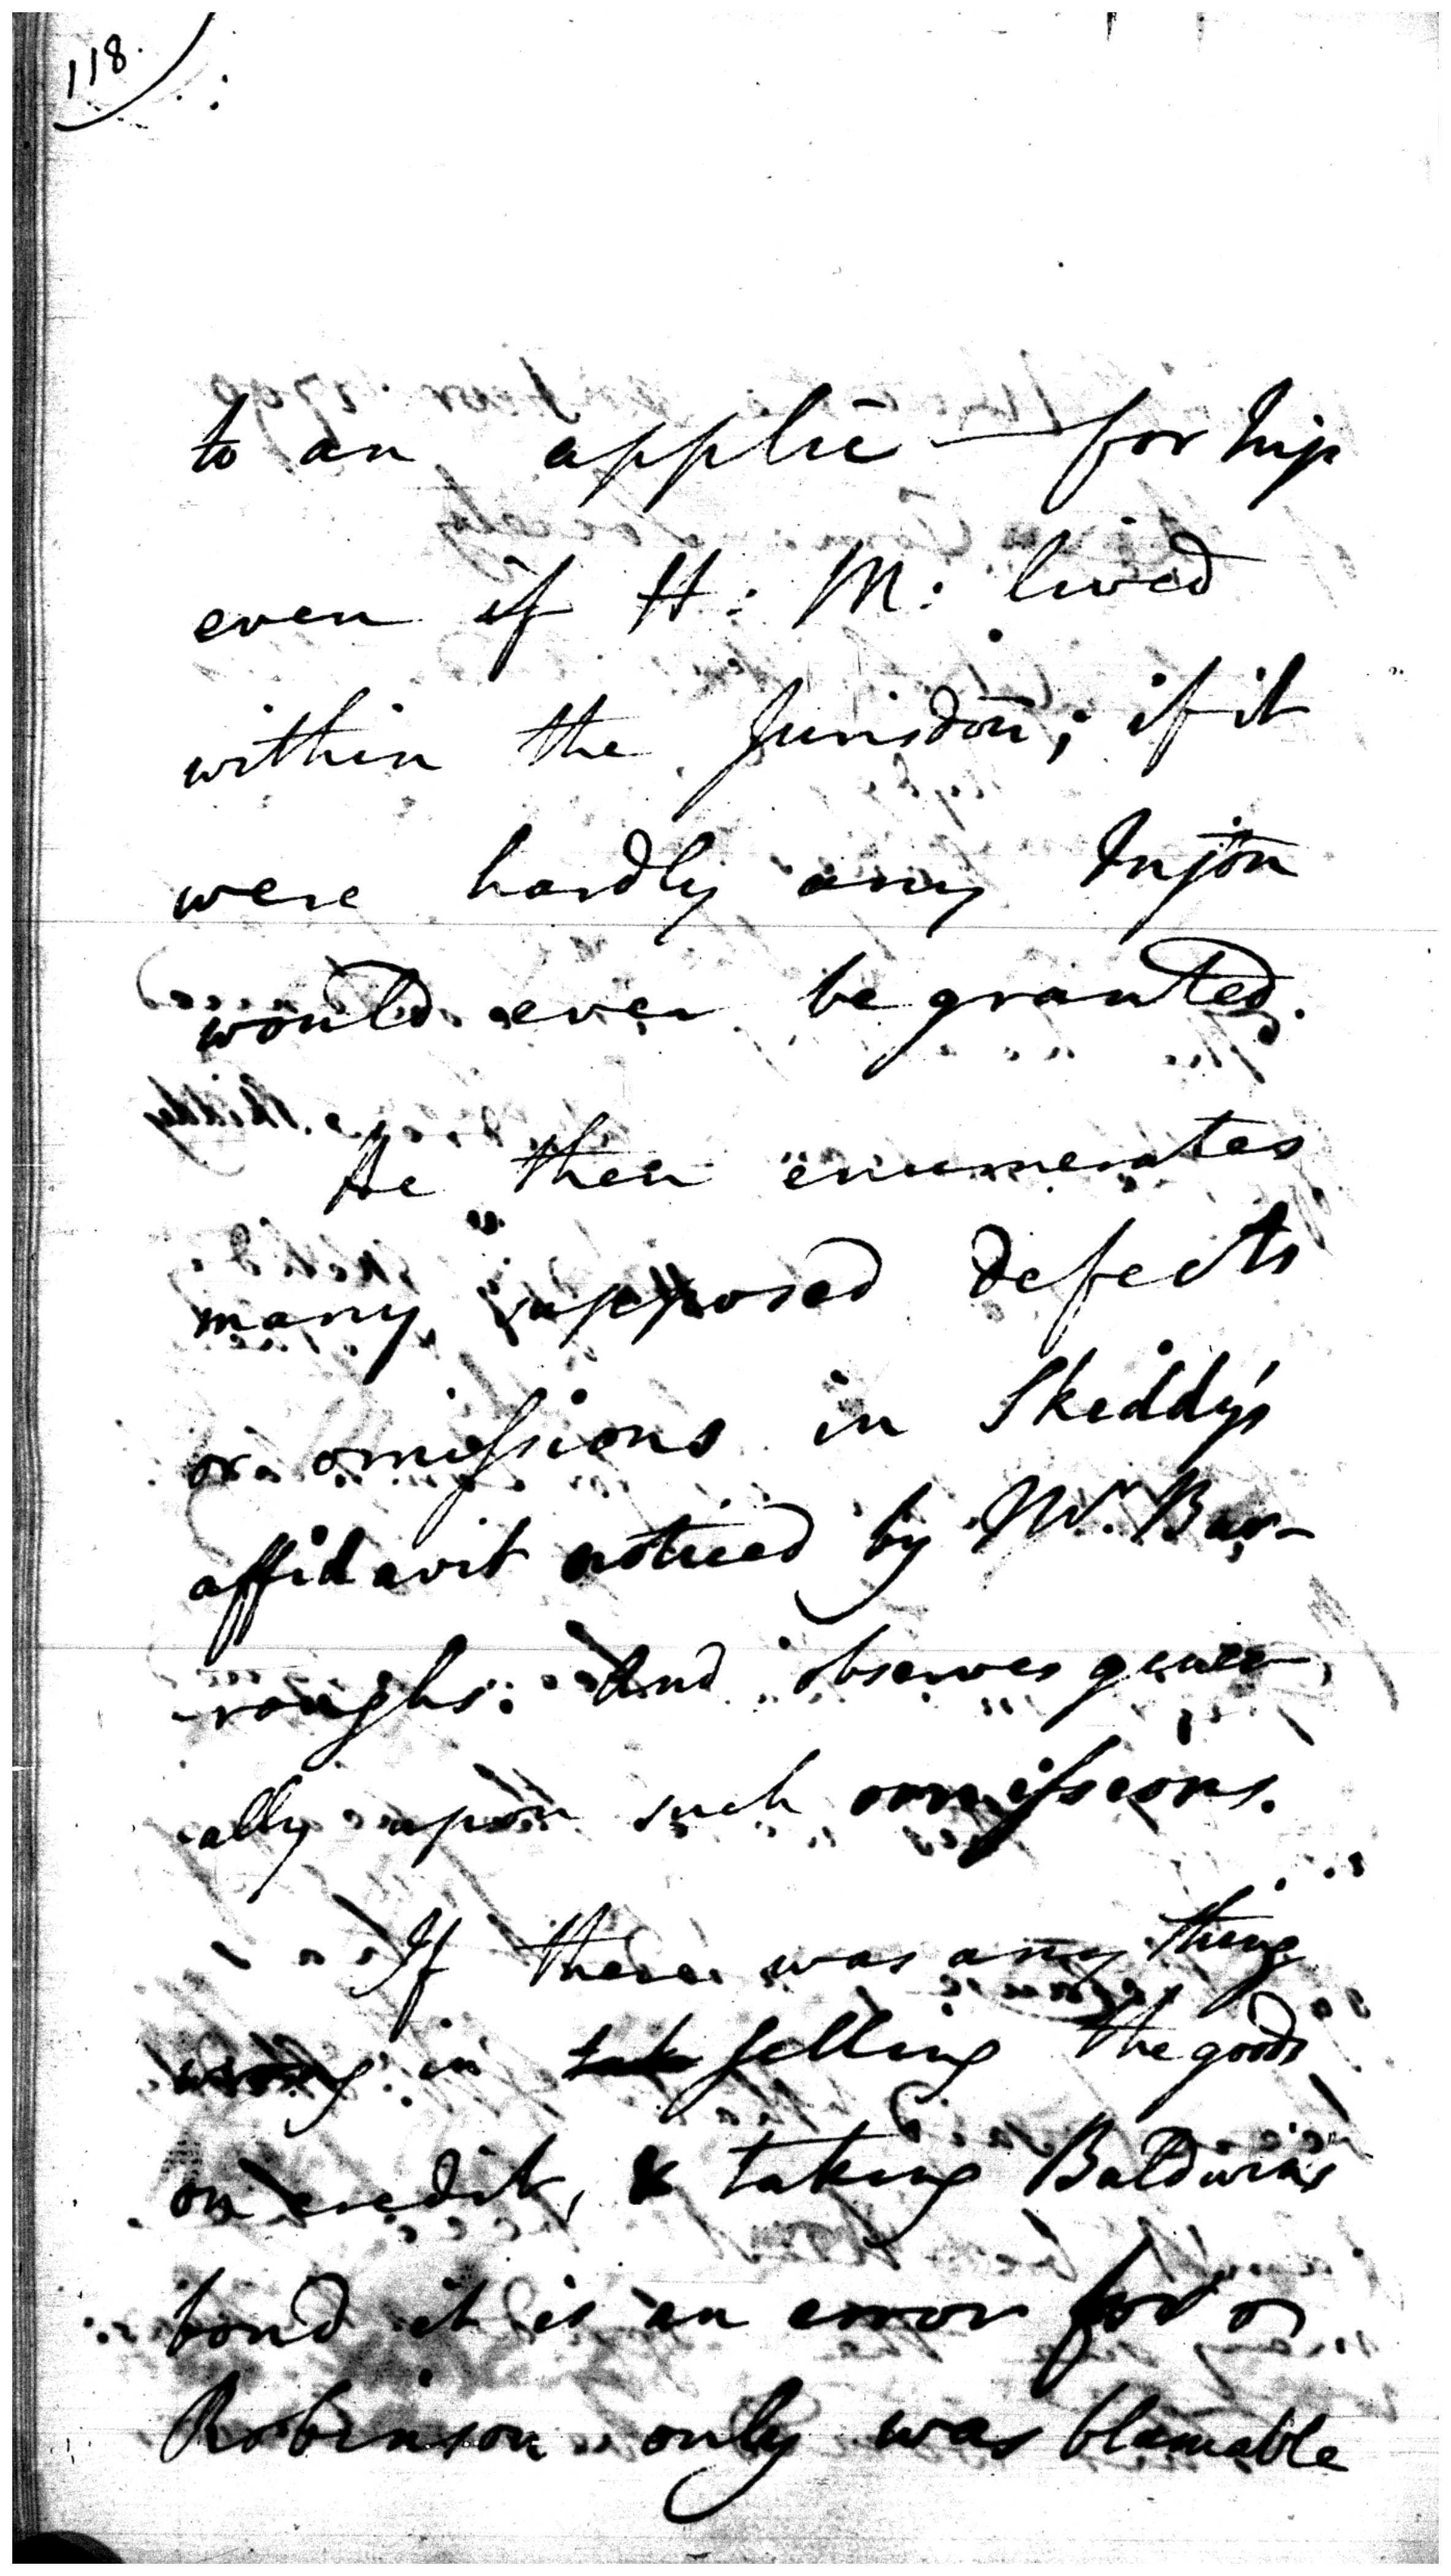 118.
to an applic̄ — for Inj̄n
even if H: M: lived
within the Jurisdon̄; if it
were hardly any Injōn
would ever be granted.
He then enumerates
many supposed defects
or omissions in Skeddy's
affidavit noticed by Mr. Bar-
-roughs: And observes gener
ally upon such omissions.
If there was any thing
wrong in selling the goods
on credit, & taking Baldwins
bond it is an error for
Robinson only was blamable